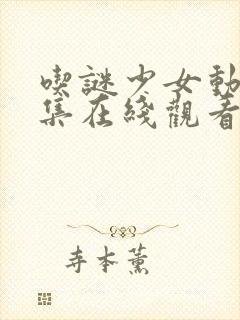 喫謎少女動
集在綫觀看
寺本薰